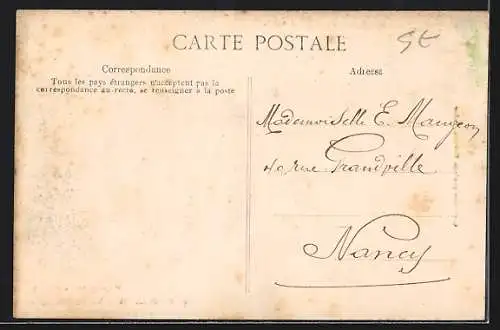 CARTE POSTALE
Correspondance
Tous les pays étrangers n'acceptent pas la
correspondance au recto, se renseigner à la poste
Adresse
Mademoiselle E. Maugeon
40 rue Grandville
Nancy